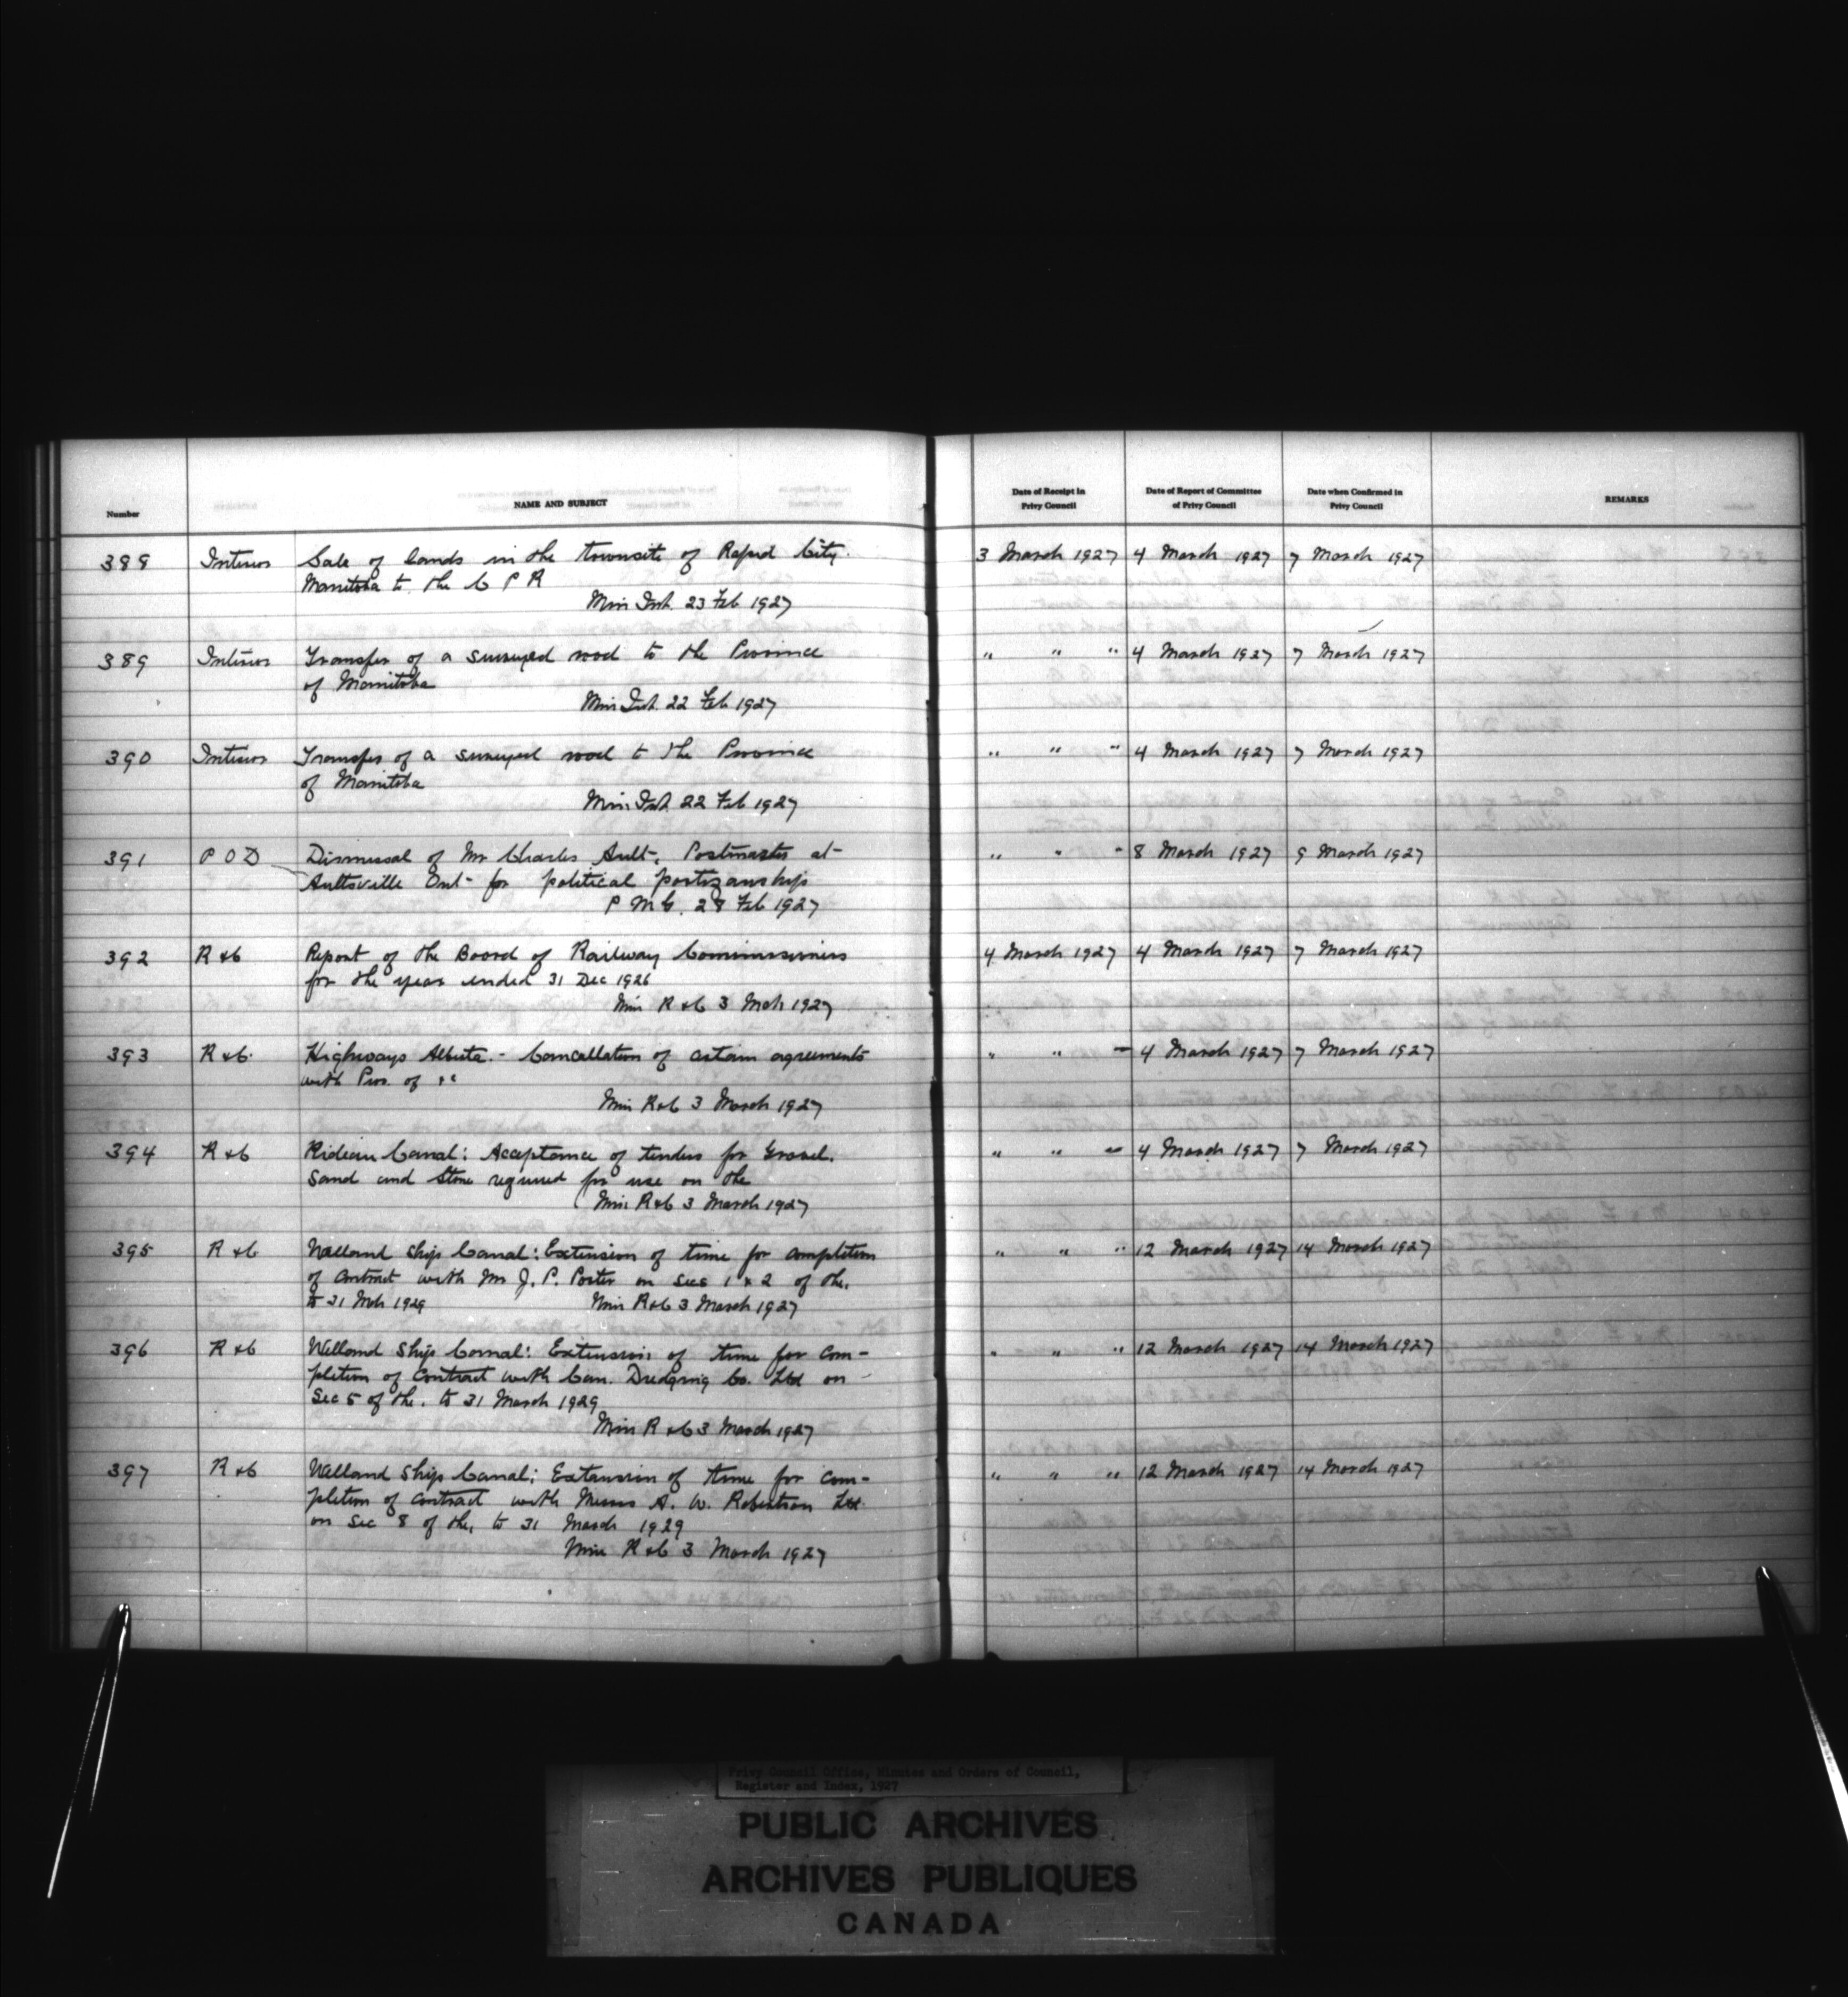 Number
NAME AND SUBJECT
Date of Receipt in Privy Council
Date of Report of Committee of Privy Council
Date when Confirmed in Privy Council
REMARKS
388 Interior Sale of lands in the townsite of Rapid City. 3 March 1927 4 March 1927 7 March 1927
Manitoba to the C P R
Min Int. 23 Feb 1927
389 Interior Transfer of a surveyed road to the Province " " " 4 March 1927 7 March 1927
of Manitoba
Min Int. 22 Feb 1927
390 Interior Transfer of a surveyed road to the Province " " " 4 March 1927 7 March 1927
of Manitoba
Min Int. 22 Feb 1927
391 P O D Dismissal of Mr Charles Ault, Postmaster at " " " 8 March 1927 9 March 1927
Aultsville Ont for political partizanship
P M G. 28 Feb 1927
392 R & C Report of the Board of Railway Commissioners 4 March 1927 4 March 1927 7 March 1927
for the year ended 31 Dec 1926
Min R & C 3 Mch 1927
393 R & C. Highways Alberta. - Cancellation of certain agreements " " " 4 March 1927 7 March 1927
with Prov. of "
Min R&C 3 March 1927
394 R & C Rideau Canal: Acceptance of tenders for Gravel. " " " 4 March 1927 7 March 1927
Sand and Stone required for use on the
Min R&C 3 March 1927
395 R & C Welland Ship Canal: Extension of time for completion " " " 12 March 1927 14 March 1927
of Contract with Mr J. P. Porter on Secs 1 & 2 of the.
to 31 Mch 1929 Min R&C 3 March 1927
396 R & C Welland Ship Canal: Extension of time for com- " " " 12 March 1927 14 March 1927
pletion of Contract with Can. Dredging Co. Ltd on
Sec 5 of the. to 31 March 1929
Min R & C 3 March 1927
397 R & C Welland Ship Canal: Extension of time for com- " " " 12 March 1927 14 March 1927
pletion of contract with Messrs A. W. Robertson Ltd.
on Sec 8 of the, to 31 March 1929
Min R & C 3 March 1927
Privy Council Office, Minutes and Orders of Council,
Register and Index, 1927
PUBLIC ARCHIVES
ARCHIVES PUBLIQUES
CANADA